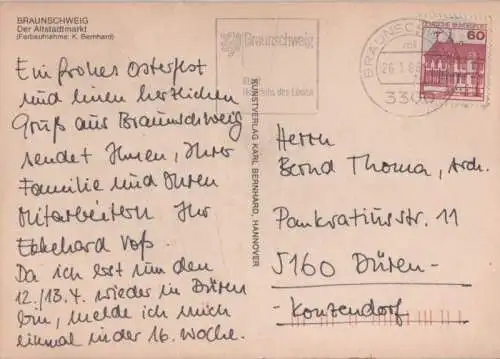 BRAUNSCHWEIG
Der Altstadtmarkt
(Farbaufnahme: K. Bernhard)
Ein frohes Osterfest
und einen herzlichen
Gruß aus Braunschweig
sendet Ihnen, Ihrer
Familie und Ihren
Mitarbeitern Ihr
Ekkehard Voß.
Da ich erst um den
12./13.4. wieder in Düren
bin, melde ich mich
einmal in der 16. Woche.
KUNSTVERLAG KARL BERNHARD, HANNOVER
Braunschweig
des Löwen
BRAUNSCHWEIG
26.3.
3300
DEUTSCHE BUNDESPOST
60
Herrn
Bernd Thoma, Arch.
Pankratiusstr. 11
5160 Düren-
-Konzendorf